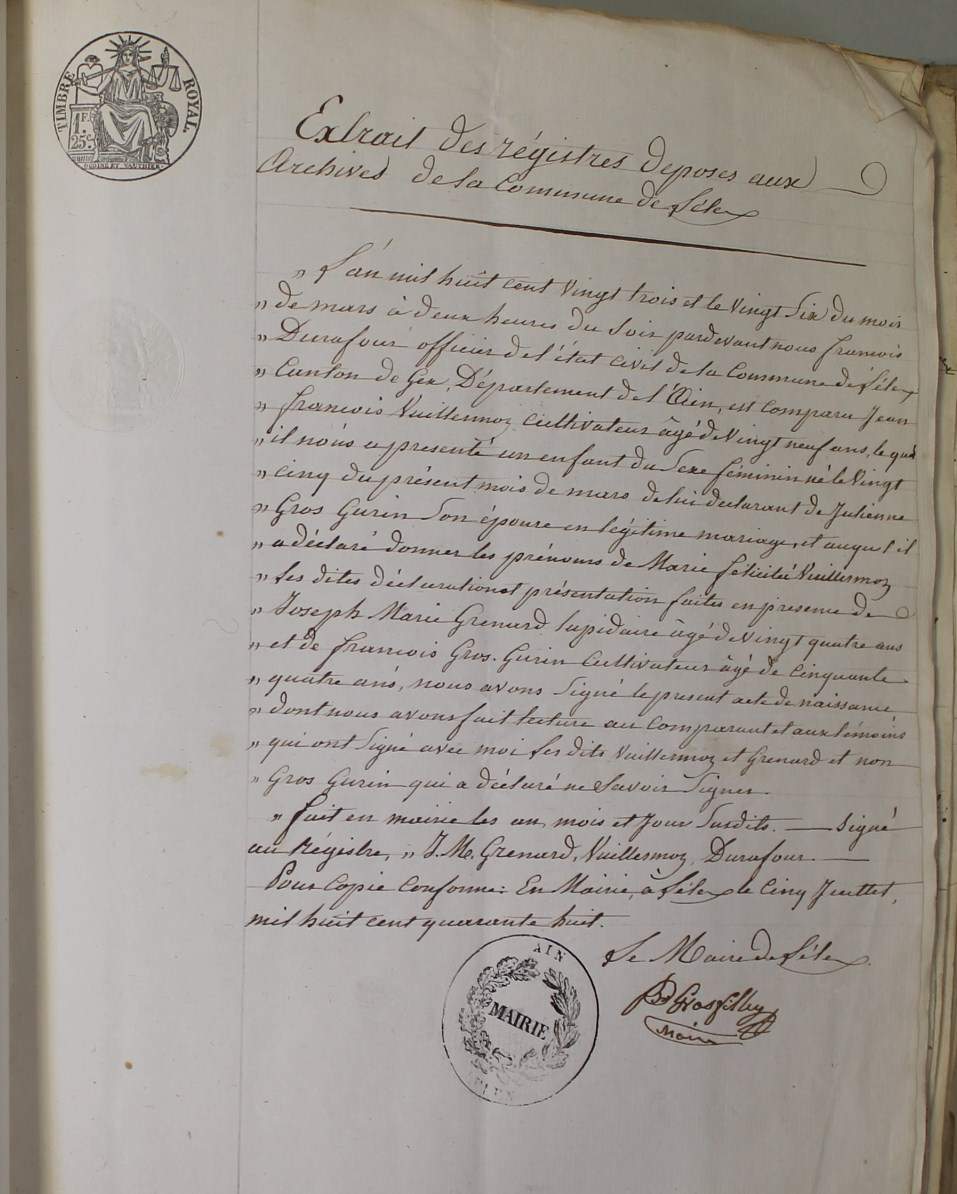 TIMBRE ROYAL.
1F.
25c.
Extrait des régistres deposés aux
Archives de la Commune de Lélex
„ L'an mil huit cent vingt trois et le vingt Six du mois
„ de mars à deux heures du Soir pardevant nous francois
„ Durafour officier de l'état civil de la Commune de Lélex
„ Canton de Gex, Département de l'Ain, est comparu Jean
„ francois Vuillermoz cultivateur âgé de vingt neuf ans, le quel
„ il nous a presenté un enfant du Sexe féminin né le Vingt
„ cinq du présent mois de mars de lui déclarant de Julienne
„ Gros Gurin Son épouse en légitime mariage, et auquel il
„ a déclaré donner les prénoms de Marie félicité Vuillermoz
„ Les dites déclaration et présentation faites en presence de
„ Joseph Marie Grenard lapidaire âgé de Vingt quatre ans
„ et de francois Gros. Gurin Cultivateur âgé de cinquante
„ quatre ans, nous avons Signé le present acte de naissance
„ dont nous avons fait lecture au Comparant et aux témoins
„ qui ont Signé avec moi Lesdits Vuillermoz et Grenard et non
„ Gros Gurin qui a déclaré ne Savoir Signer.
„ fait en mairie les an, mois et Jour Susdits. — Signé
au Régistre, „ J. M. Grenard, Vuillermoz, Durafour. —
Pour Copie Conforme: En Mairie, à Lélex le Cinq Juillet,
mil huit cent quarante huit.
Le Maire de Lélex
Grosfilley
Maire
AIN
MAIRIE